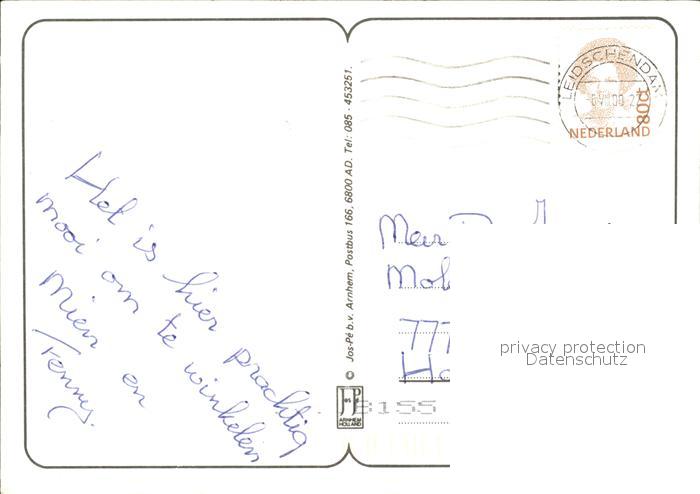 Het is hier prachtig
mooi om te winkelen
Mien en
© Jos-Pé b.v. Arnhem, Postbus 166, 6800 AD. Tel: 085 - 453251.
ARNHEM
HOLLAND
LEIDSCHENDAM
80ct
NEDERLAND
777
8155
privacy protection
Datenschutz